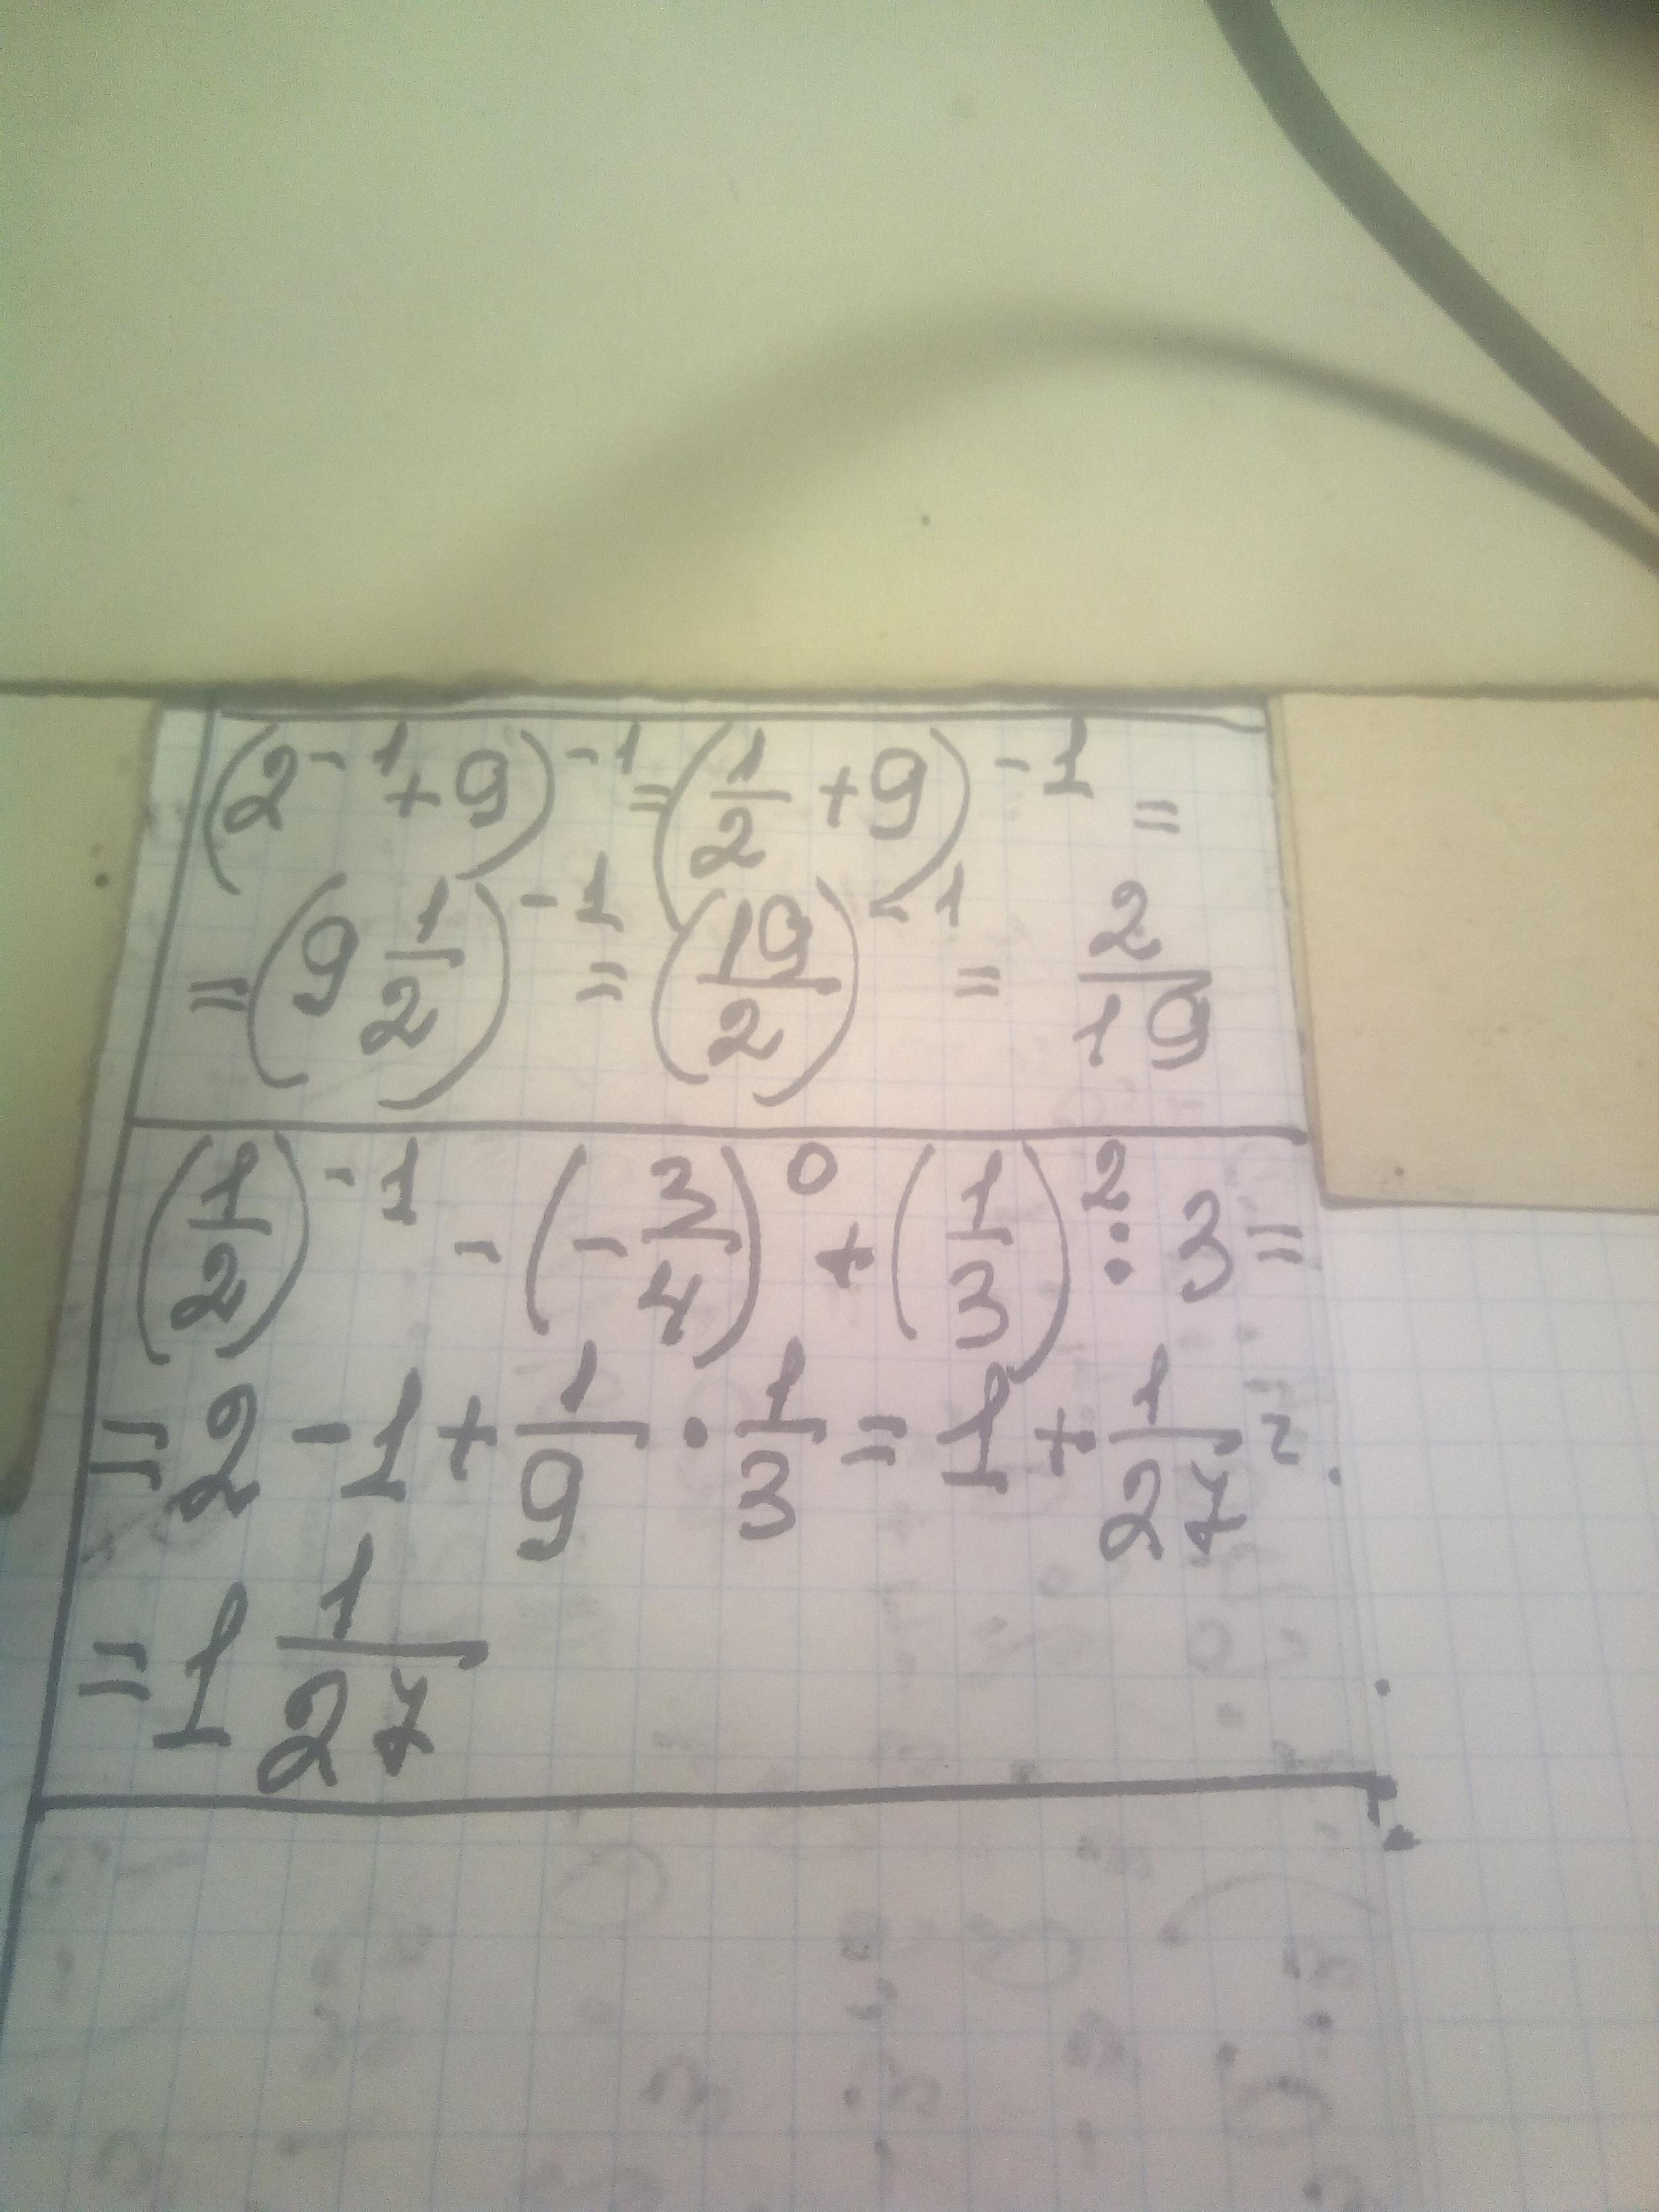 (2⁻¹+9)⁻¹=(1/2+9)⁻¹=
=(9 1/2)⁻¹=(19/2)⁻¹=2/19
(1/2)⁻¹-(-3/4)⁰+(1/3)²:3=
=2-1+1/9·1/3=1+1/27=
=1 1/27